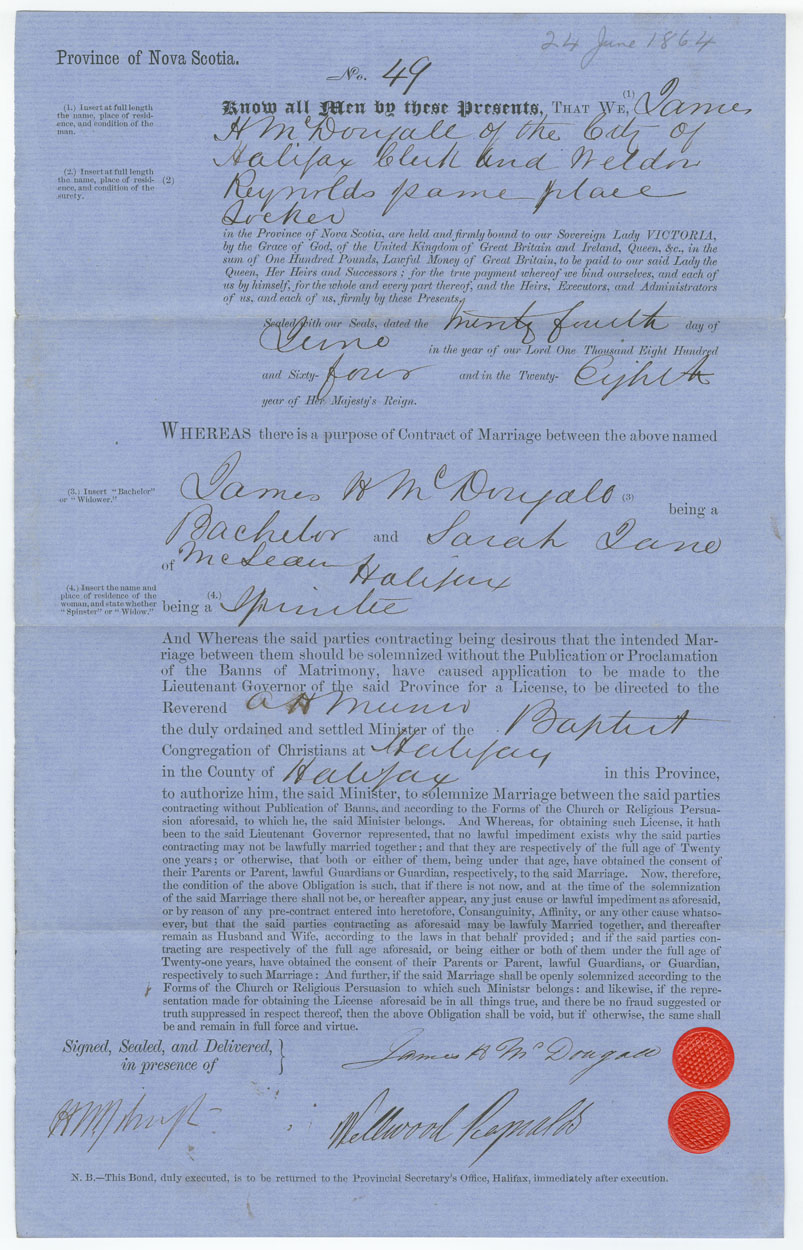 24 June 1864
Province of Nova Scotia.
No. 49
(1.) Insert at full length
the name, place of resid-
ence, and condition of the
man.
Know all Men by these Presents, THAT WE, (1) James
H McDougall of the City of
Halifax Clerk and Weldon
(2.) Insert at full length
the name, place of resid-
ence, and condition of the
surety.
(2) Reynolds same place
in the Province of Nova Scotia, are held and firmly bound to our Sovereign Lady VICTORIA,
by the Grace of God, of the United Kingdom of Great Britain and Ireland, Queen, &c., in the
sum of One Hundred Pounds, Lawful Money of Great Britain, to be paid to our said Lady the
Queen, Her Heirs and Successors; for the true payment whereof we bind ourselves, and each of
us by himself, for the whole and every part thereof, and the Heirs, Executors, and Administrators
of us, and each of us, firmly by these Presents,
Sealed with our Seals, dated the twenty fourth day of
June in the year of our Lord One Thousand Eight Hundred
and Sixty- four and in the Twenty- Eighth
year of Her Majesty's Reign.
WHEREAS there is a purpose of Contract of Marriage between the above named
(3.) Insert "Bachelor"
or "Widower."
James H McDougall (3) being a
Bachelor and Sarah Jane
McLean
of Halifax
(4.) Insert the name and
place of residence of the
woman, and state whether
"Spinster" or "Widow."
being a (4.) Spinster
And Whereas the said parties contracting being desirous that the intended Mar-
riage between them should be solemnized without the Publication or Proclamation
of the Banns of Matrimony, have caused application to be made to the
Lieutenant Governor of the said Province for a License, to be directed to the
Reverend A H Munro
the duly ordained and settled Minister of the Baptist
Congregation of Christians at Halifax
in the County of Halifax in this Province,
to authorize him, the said Minister, to solemnize Marriage between the said parties
contracting without Publication of Banns, and according to the Forms of the Church or Religious Persua-
sion aforesaid, to which he, the said Minister belongs. And Whereas, for obtaining such License, it hath
been to the said Lieutenant Governor represented, that no lawful impediment exists why the said parties
contracting may not be lawfully married together; and that they are respectively of the full age of Twenty
one years; or otherwise, that both or either of them, being under that age, have obtained the consent of
their Parents or Parent, lawful Guardians or Guardian, respectively, to the said Marriage. Now, therefore,
the condition of the above Obligation is such, that if there is not now, and at the time of the solemnization
of the said Marriage there shall not be, or hereafter appear, any just cause or lawful impediment as aforesaid,
or by reason of any pre-contract entered into heretofore, Consanguinity, Affinity, or any other cause whatso-
ever, but that the said parties contracting as aforesaid may be lawfuly Married together, and thereafter
remain as Husband and Wife, according to the laws in that behalf provided; and if the said parties con-
tracting are respectively of the full age aforesaid, or being either or both of them under the full age of
Twenty-one years, have obtained the consent of their Parents or Parent, lawful Guardians, or Guardian,
respectively to such Marriage: And further, if the said Marriage shall be openly solemnized according to the
Forms of the Church or Religious Persuasion to which such Ministsr belongs: and likewise, if the repre-
sentation made for obtaining the License aforesaid be in all things true, and there be no fraud suggested or
truth suppressed in respect thereof, then the above Obligation shall be void, but if otherwise, the same shall
be and remain in full force and virtue.
Signed, Sealed, and Delivered,
in presence of
James H McDougall
Wellwood Reynolds
N. B.—This Bond, duly executed, is to be returned to the Provincial Secretary's Office, Halifax, immediately after execution.